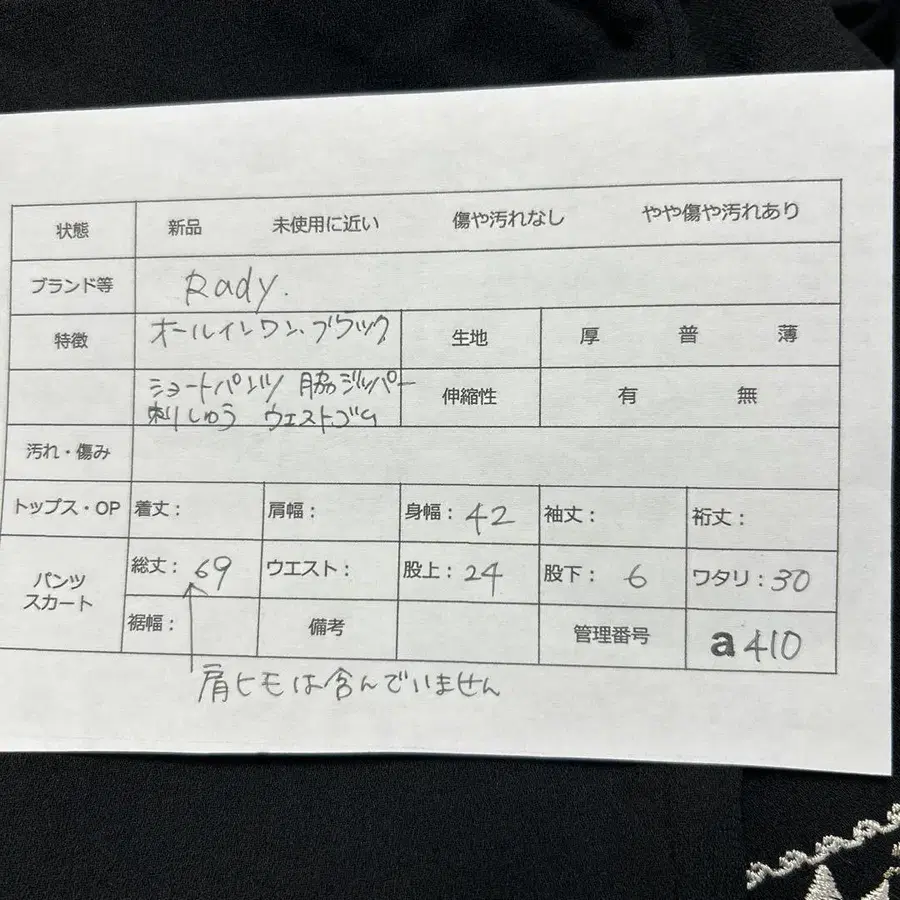 状態 新品 未使用に近い 傷や汚れなし やや傷や汚れあり
ブランド等 Rady.
特徴 オールインワン・ブラック 生地 厚 普 薄
ショートパンツ 脇ジッパー 伸縮性 有 無
刺しゅう ウエストゴム
汚れ・傷み
トップス・OP 着丈： 肩幅： 身幅：42 袖丈： 裄丈：
パンツ スカート 総丈：69 ウエスト： 股上：24 股下：6 ワタリ：30
裾幅： 備考 管理番号 a410
肩ヒモは含んでいません